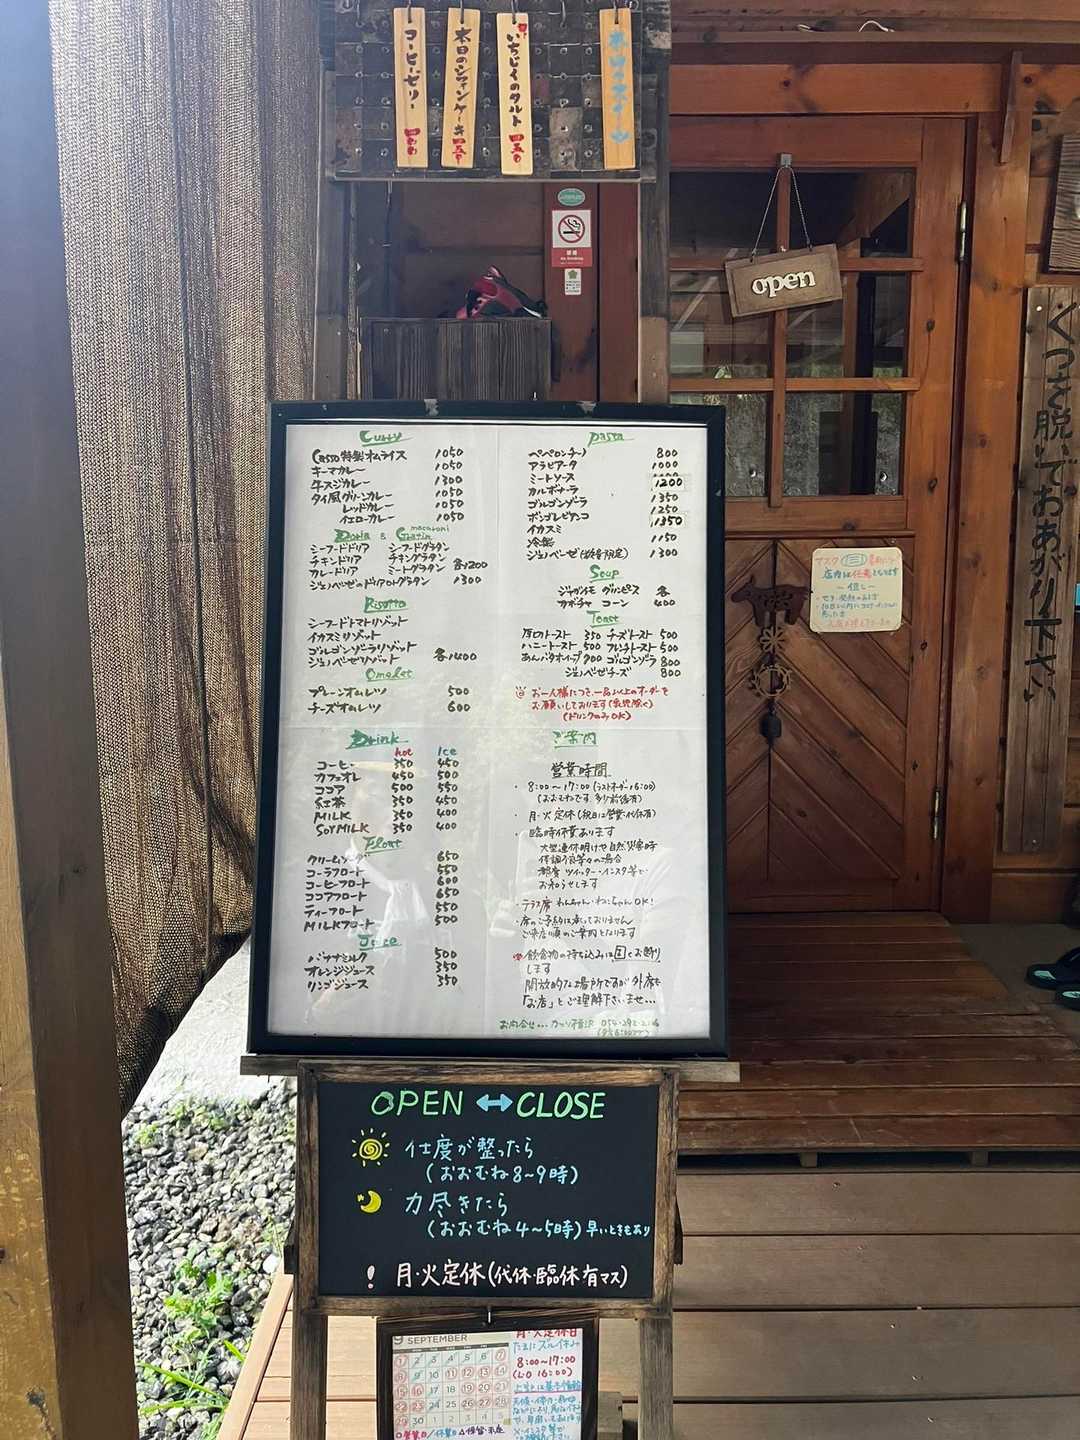 コーヒーゼリー
本日のシフォンケーキ 四五〇
いちじくのタルト 四五〇
open
くつを脱いでおあがり下さい
店内は任意となります
Curry
Casso特製オムライス 1050
キーマカレー 1050
牛スジカレー 1300
タイ風グリーンカレー 1050
レッドカレー 1050
イエローカレー 1050
Doria & macaroni Gratin
シーフードドリア シーフードグラタン
チキンドリア チキングラタン
カレードリア ミートグラタン 各1200
ジェノベーゼのドリアorグラタン 1300
Risotto
シーフードトマトリゾット
イカスミリゾット
ゴルゴンゾーラリゾット
ジェノベーゼリゾット 各1400
Omelet
プレーンオムレツ 500
チーズオムレツ 600
Drink
hot Ice
コーヒー 350 450
カフェオレ 450 500
ココア 500 550
紅茶 350 450
MILK 350 400
SOY MILK 350 400
Float
クリームソーダ 650
コーラフロート 550
コーヒーフロート 600
ココアフロート 650
ティーフロート 550
MILKフロート 500
Juice
バナナミルク 500
オレンジジュース 350
リンゴジュース 350
Pasta
ペペロンチーノ 800
アラビアータ 1000
ミートソース
カルボナーラ 1200
ゴルゴンゾーラ 1350
ボンゴレビアンコ 1250
イカスミ 1350
冷製 1150
ジェノベーゼ(数量限定) 1300
Soup
ジャガイモ グリンピース 各
カボチャ コーン 400
Toast
厚切トースト 350 チーズトースト 500
ハニートースト 500 フレンチトースト 500
あんバタホイップ 700 ゴルゴンゾーラ 800
ジェノベーゼチーズ 800
お一人様につき、一品以上のオーダーを
お願いしております(乳児除く)
(ドリンクのみOK)
ご案内
営業時間
・8:00〜17:00(ラストオーダー16:00)
(おおむねです。多少前後有)
・月・火定休(祝日は営業・代休有)
・臨時休業あります
大型連休明けや自然災害時
体調不良等々の場合
都度ツイッター・インスタ等で
お知らせします
・テラス席 わんちゃん・ねこちゃんOK!
・席のご予約は承っておりません
ご来店順のご案内となります
飲食物の持ち込みは固くお断り
します
開放的な場所ですが外席も
「お店」とご理解下さいませ…
OPEN ↔ CLOSE
仕度が整ったら
(おおむね8〜9時)
力尽きたら
(おおむね4〜5時)早いときもあり
! 月・火定休(代休・臨休有マス)
9 SEPTEMBER
1 2 3 4 5 6 7
8 9 10 11 12 13 14
15 16 17 18 19 20 21
22 23 24 25 26 27 28
29 30 1 2 3 4 5
月・火定休日
たまにズル休み
8:00〜17:00
(L.O 16:00)